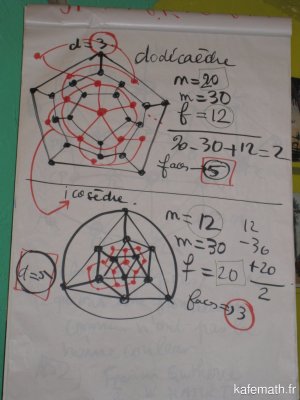 d=3
dodécaèdre
n=20
m=30
f=12
20-30+12=2
faces → 5
icosèdre.
n=12 12
m=30 -30
d=5
f=20 +20
2
faces → 3
kafemath.fr